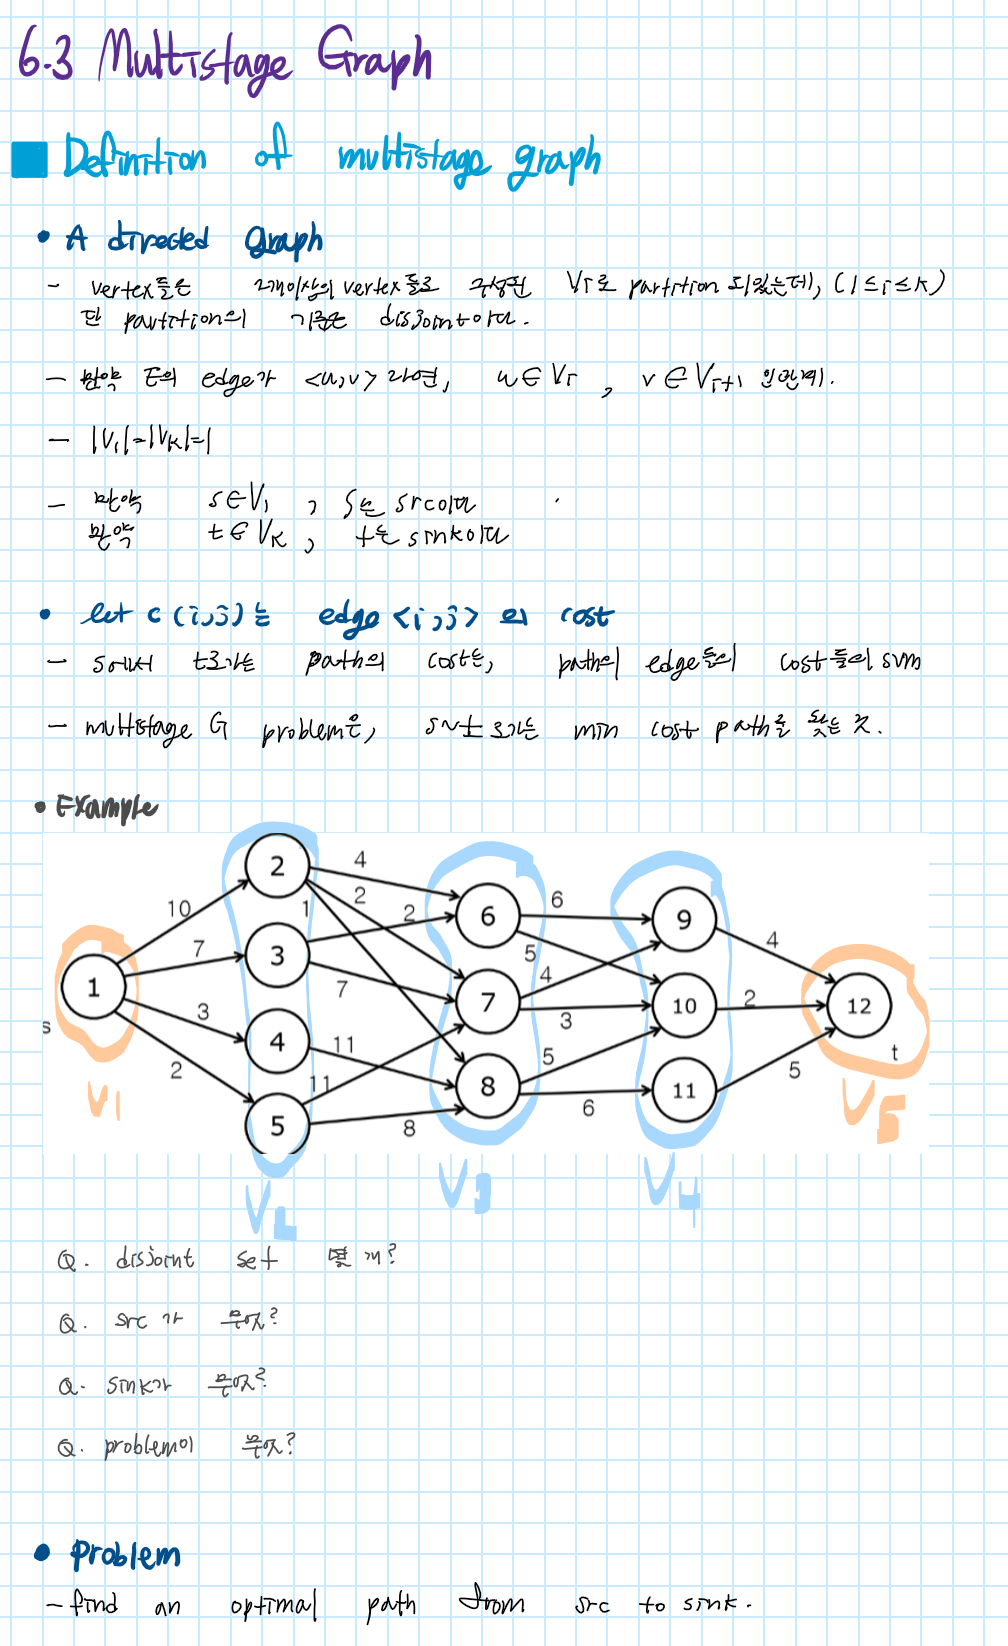 6.3 Multistage Graph
Definition of multistage graph
• A directed graph
- vertex들은 2개이상의 vertex들로 구성된 Vi로 partition 되있는데, (1≤i≤k)
단 partition의 기준은 disjoint이다.
- 만약 E의 edge가 <u,v> 라면, u∈Vi , v∈Vi+1 인관계.
- |V1|=|Vk|=1
- 만약 s∈V1 , s는 src이다
만약 t∈Vk , t는 sink이다
• let c(i,j)는 edge <i,j> 의 cost
- s에서 t로가는 path의 cost는, path의 edge들의 cost들의 sum
- multistage G problem은, s~t 로가는 min cost path를 찾는 것.
• Example
2
4
2
10
1
2
6
6
9
3
7
5
4
1
4
7
7
10
2
12
s
3
4
3
t
11
2
11
5
8
11
5
6
5
8
V1
V2
V3
V4
V5
Q. disjoint set 몇 개?
Q. src 가 무엇?
Q. sink가 무엇?
Q. problem이 무엇?
• Problem
- find an optimal path from src to sink.